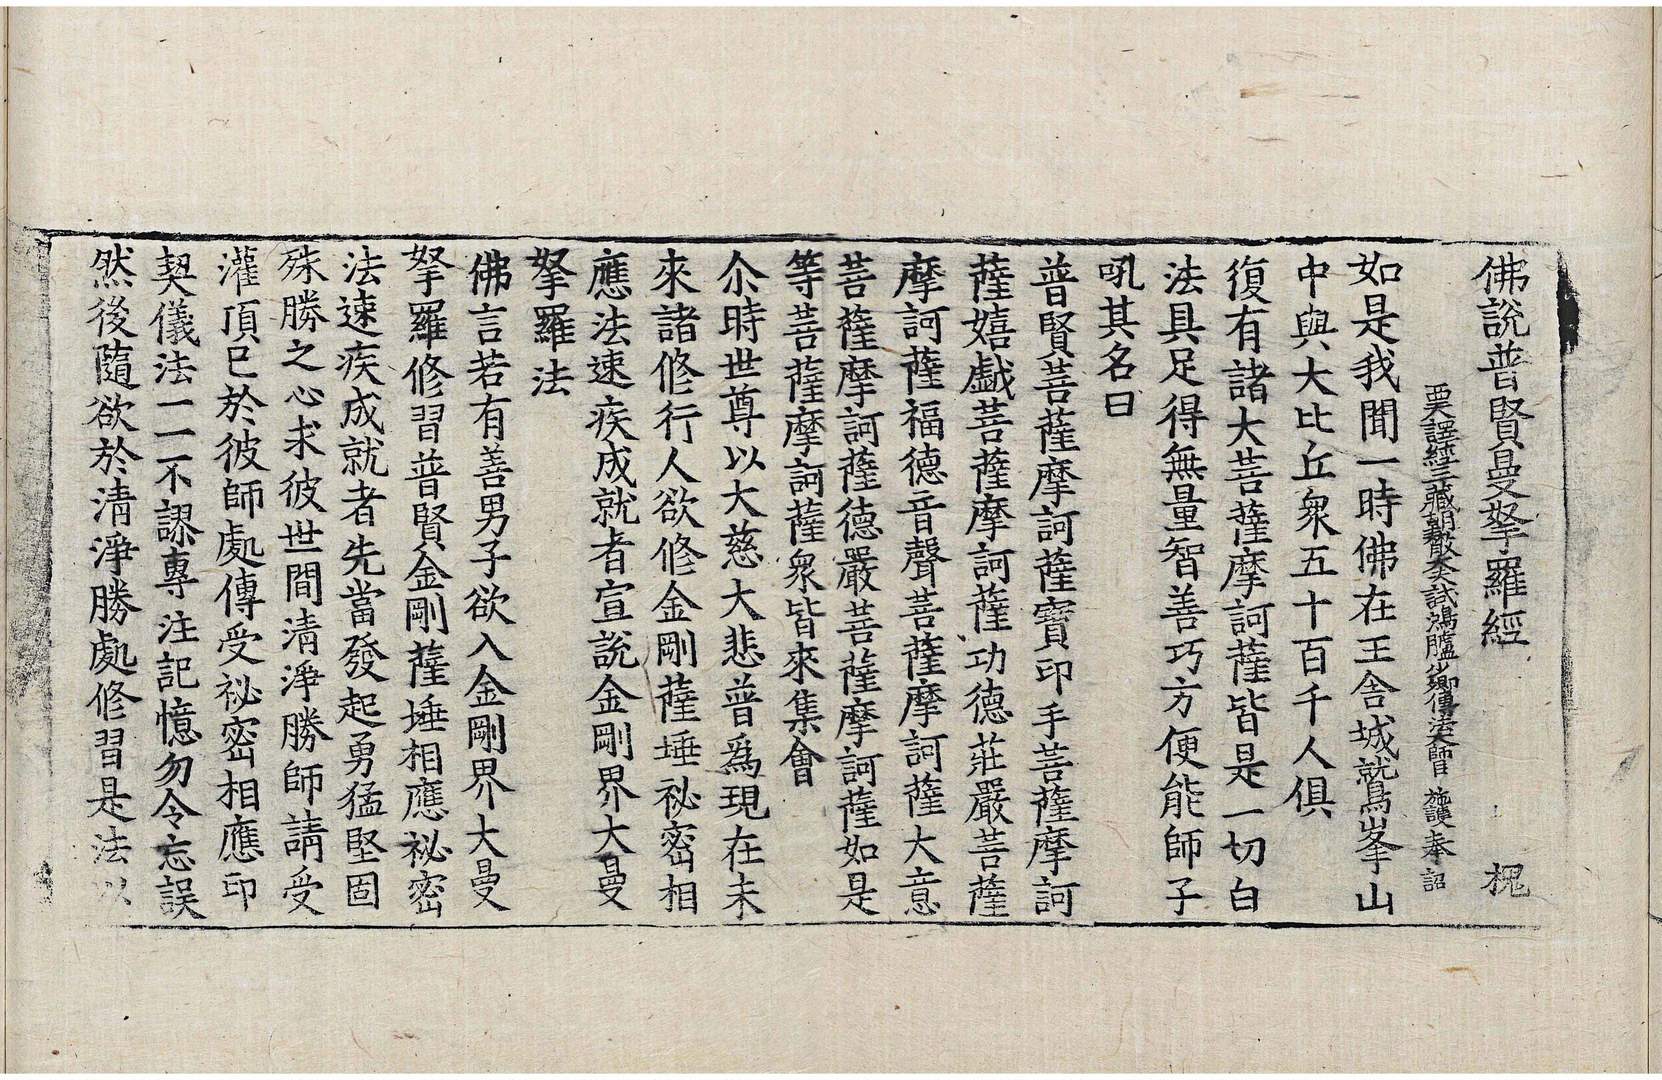 佛說普賢曼拏羅經 槐
西天譯經三藏朝散大夫試鴻臚少卿傳法大師臣 施護奉 詔
如是我聞一時佛在王舍城鷲峯山
中與大比丘衆五十百千人俱
復有諸大菩薩摩訶薩皆是一切白
法具足得無量智善巧方便能師子
吼其名曰
普賢菩薩摩訶薩寶印手菩薩摩訶
薩嬉戲菩薩摩訶薩功德莊嚴菩薩
摩訶薩福德音聲菩薩摩訶薩大意
菩薩摩訶薩德嚴菩薩摩訶薩如是
等菩薩摩訶薩衆皆來集會
尒時世尊以大慈大悲普爲現在未
來諸修行人欲修金剛薩埵祕密相
應法速疾成就者宣說金剛界大曼
拏羅法
佛言若有善男子欲入金剛界大曼
拏羅修習普賢金剛薩埵相應祕密
法速疾成就者先當發起勇猛堅固
殊勝之心求彼世間清淨勝師請受
灌頂已於彼師處傳受祕密相應印
契儀法一一不謬專注記憶勿令忘誤
然後隨欲於清淨勝處修習是法以